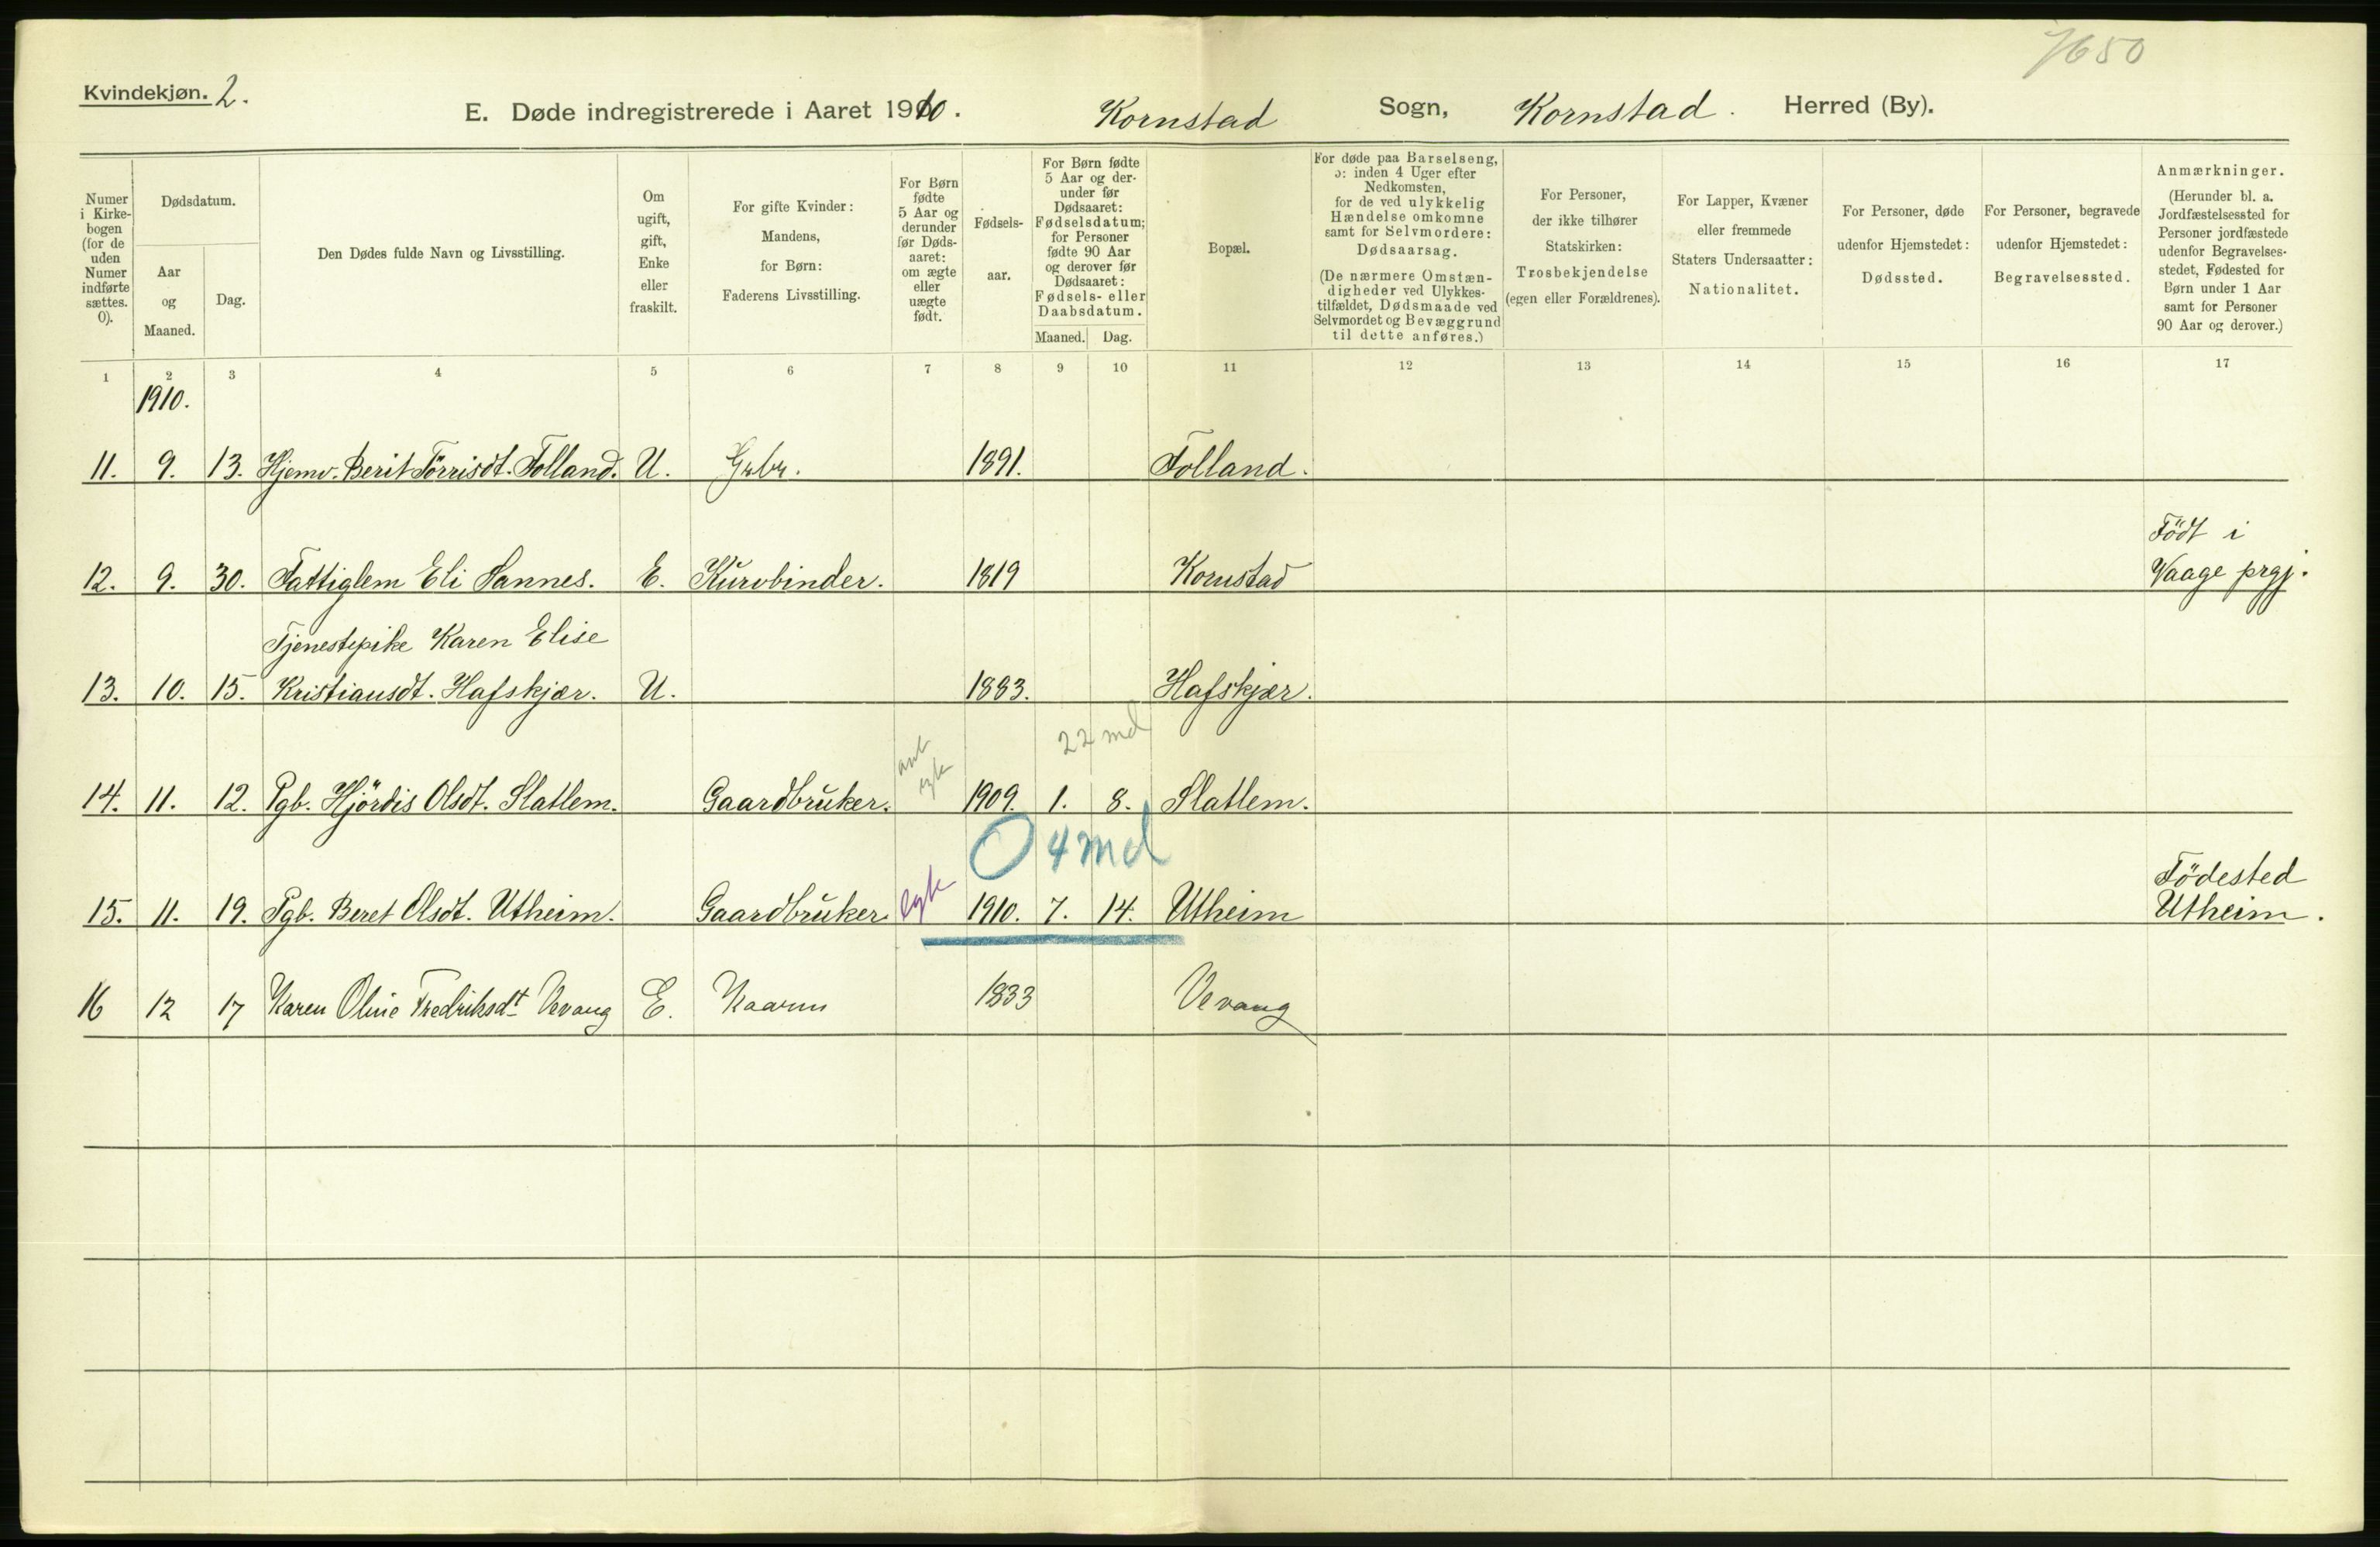 7650
Kvindekjøn. 2.
E. Døde indregistrerede i Aaret 1910. Kornstad Sogn, Kornstad. Herred (By).
Numer i Kirkebogen (for de uden Numer indførte sættes. 0).
Dødsdatum.
Aar og Maaned.
Dag.
Den Dødes fulde Navn og Livsstilling.
Om ugift, gift, Enke eller fraskilt.
For gifte Kvinder: Mandens, for Børn: Faderens Livsstilling.
For Børn fødte 5 Aar og derunder før Dødsaaret: om ægte eller uægte født.
Fødselsaar.
For Børn fødte 5 Aar og derunder før Dødsaaret: Fødselsdatum; for Personer fødte 90 Aar og derover før Dødsaaret: Fødsels- eller Daabsdatum.
Maaned. Dag.
Bopæl.
For døde paa Barselseng, ɔ: inden 4 Uger efter Nedkomsten, for de ved ulykkelig Hændelse omkomne samt for Selvmordere: Dødsaarsag. (De nærmere Omstændigheder ved Ulykkestilfældet, Dødsmaade ved Selvmordet og Bevæggrund til dette anføres.)
For Personer, der ikke tilhører Statskirken: Trosbekjendelse (egen eller Forældrenes).
For Lapper, Kvæner eller fremmede Staters Undersaatter: Nationalitet.
For Personer, døde udenfor Hjemstedet: Dødssted.
For Personer, begravede udenfor Hjemstedet: Begravelsessted.
Anmærkninger. (Herunder bl. a. Jordfæstelsessted for Personer jordfæstede udenfor Begravelsesstedet, Fødested for Børn under 1 Aar samt for Personer 90 Aar og derover.)
1 2 3 4 5 6 7 8 9 10 11 12 13 14 15 16 17
1910.
11. 9. 13. Hjemv. Berit Törrisdt. Folland. U. Grbr. 1891. Folland.
Födt i
12. 9. 30. Fattiglem Eli Sannes. E. Kurvbinder. 1819 Kornstad Vaage prgj.
Tjenestepike Karen Elise
13. 10. 15. Kristiansdt. Hafskjær. U. 1883. Hafskjær.
22 md
14. 11. 12. Pgb. Hjördis Olsdt. Slatlem. Gaardbruker. ant egte 1909. 1. 8. Slatlem.
O 4 md
Födested
15. 11. 19. Pgb. Beret Olsdt. Utheim. Gaardbruker. egte 1910. 7. 14. Utheim Utheim.
16 12 17 Karen Oline Fredriksdt Vevang E. Kaarm 1833 Vevang